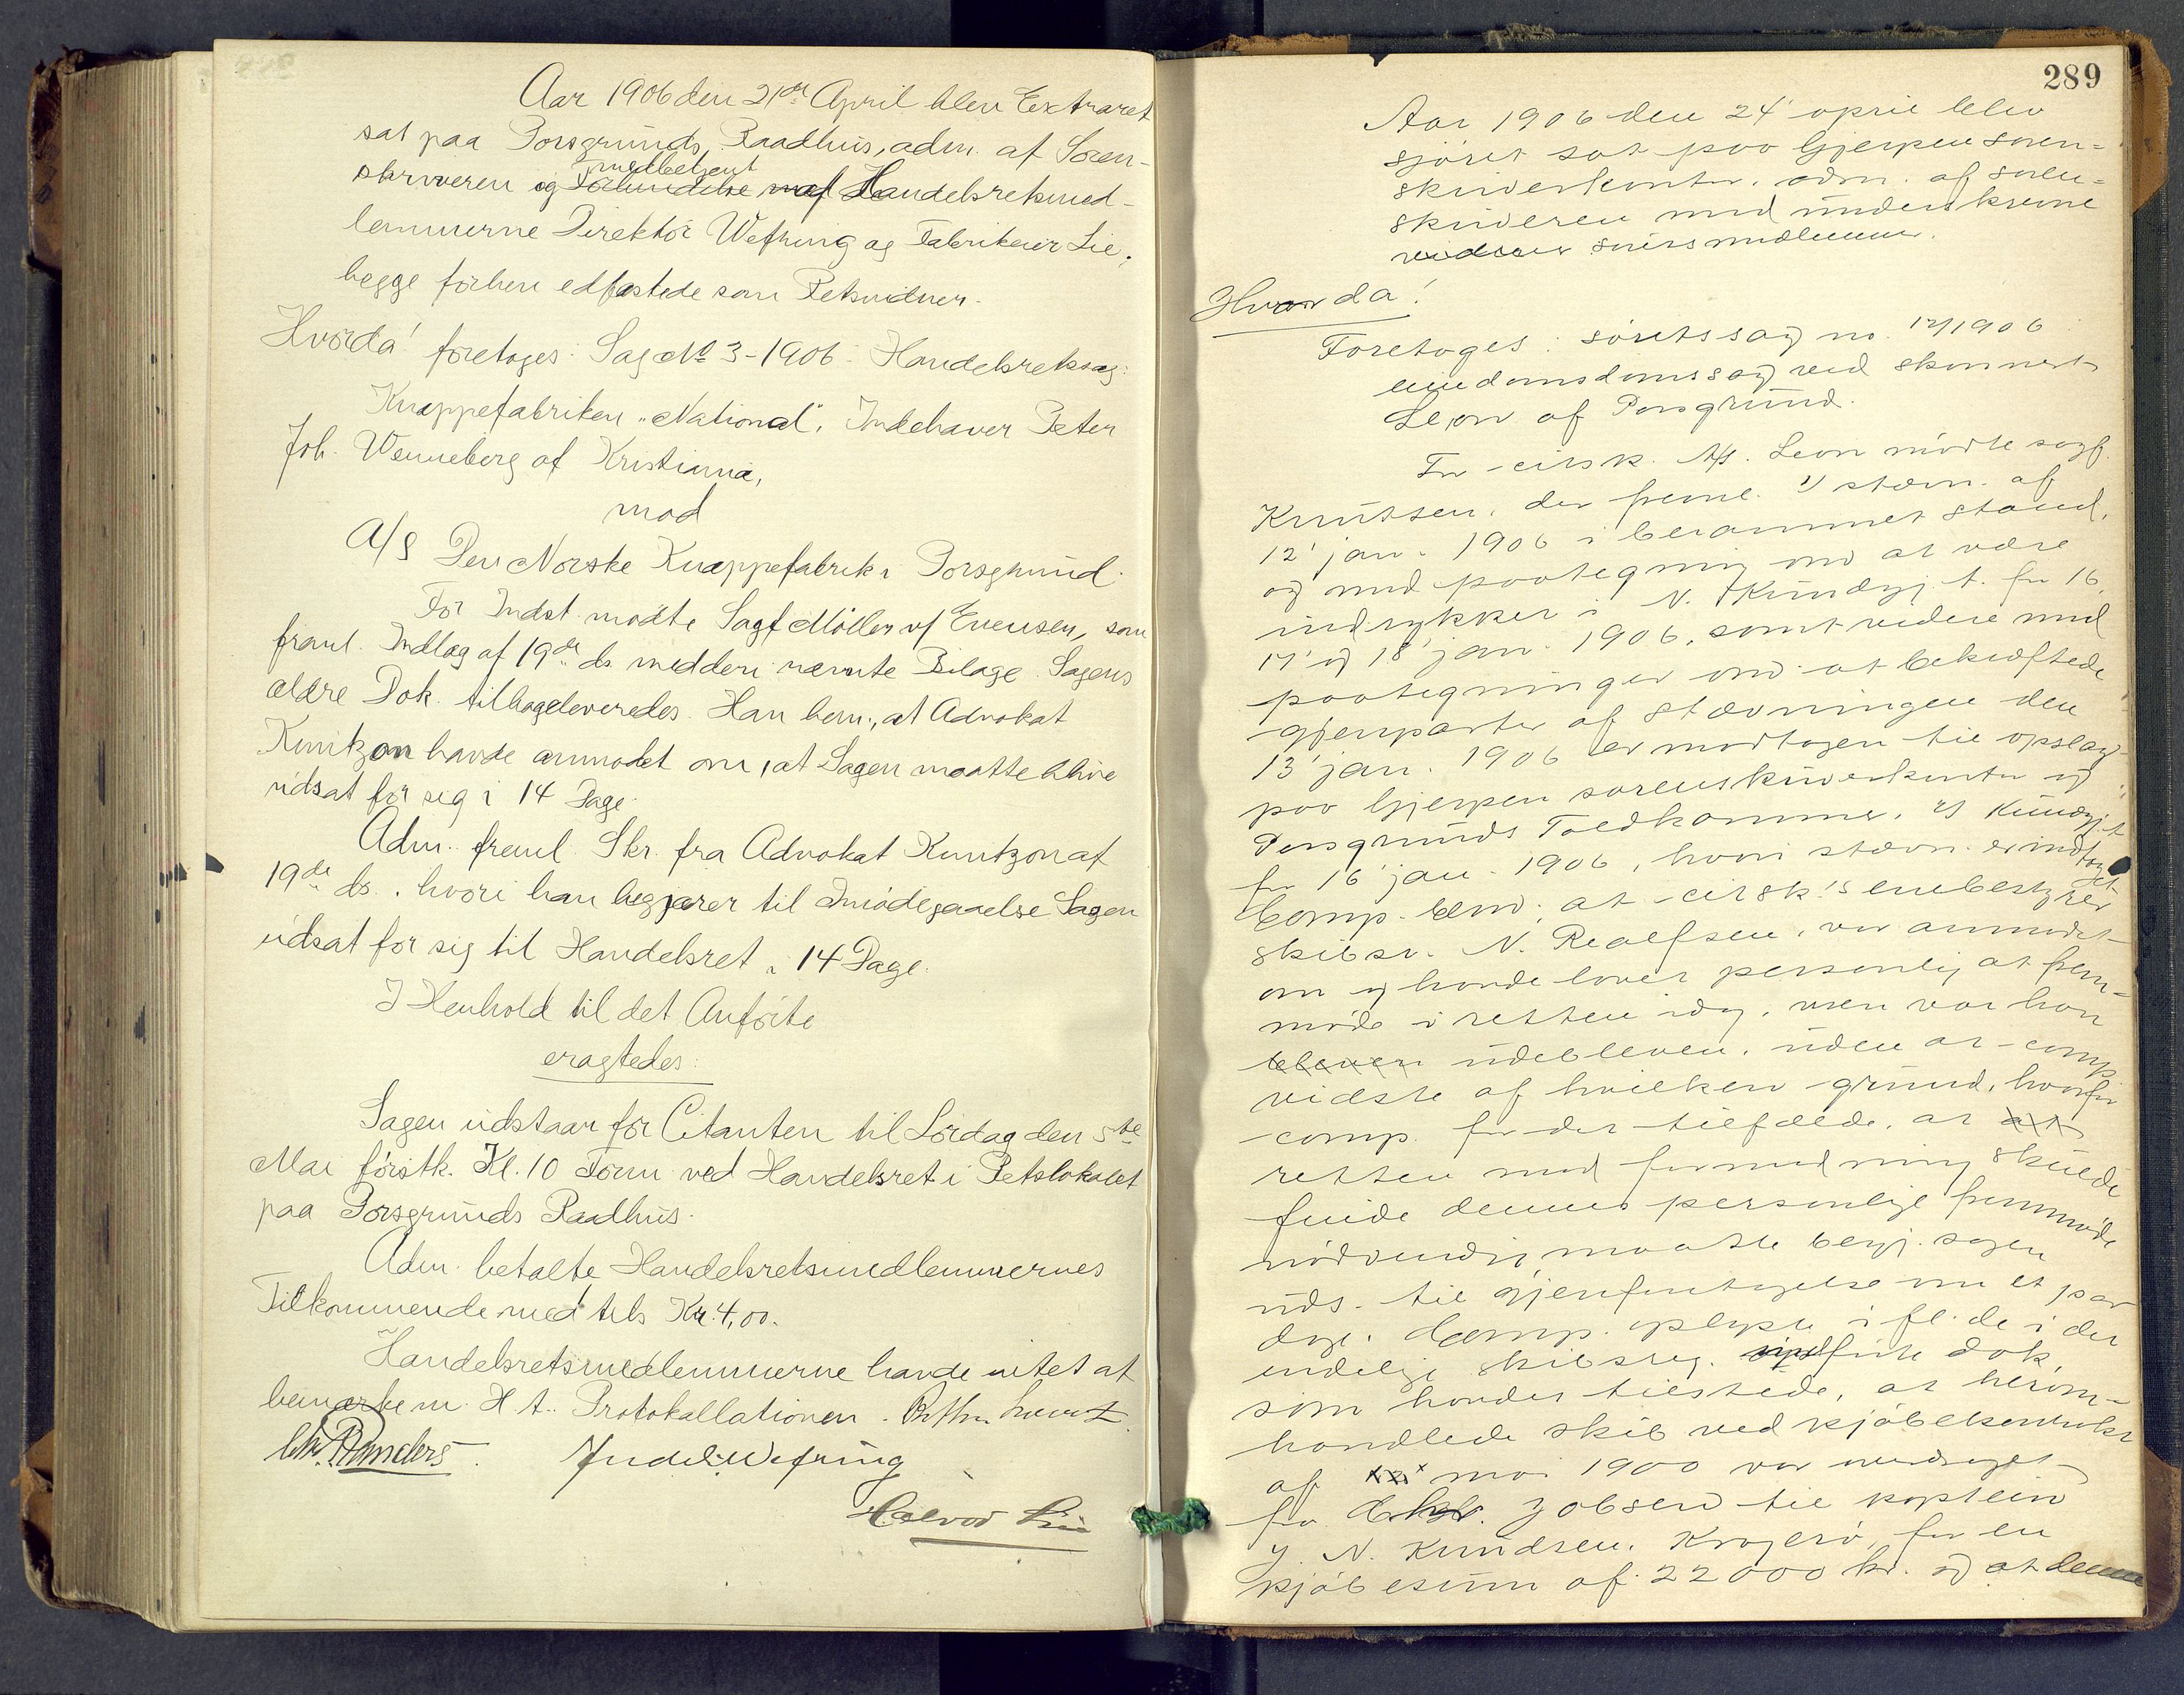 Aar 1906 den 21de April blev Extraret
sat paa Porsgrunds Raadhus, adm. af Soren-
skriveren og medbetjent Handelsretsmed-
lemmerne Direktör Wefring og Fabrikeier Lie,
begge forhen edfæstede som Retsvidner.
Hvorda! foretoges Sag No 3-1906 Handelsretssag:
Knappefabriken "National", Indehaver Peter
Joh. Wenneberg af Kristiania,
mod
A/S Den Norske Knappefabrik i Porsgrund.
For Indst. mödte Sagf. Möller v/ Evensen, som
freml. Indlæg af 19de ds. med deri nævnte Bilage. Sagens
ældre Dok. tilbageleveredes. Han bem., at Advokat
Kuntzon havde anmodet om, at Sagen maatte blive
udsat for sig i 14 Dage.
Adm. freml. Skr. fra Advokat Kuntzon af
19de ds., hvori han begjærer til Imödegaaelse Sagen
udsat for sig til Handelsret i 14 Dage.
I Henhold til det Anförte
eragtedes:
Sagen udstaar for Citanten til Lördag den 5te
Mai förstk. Kl. 10 Form ved Handelsret i Retslokalet
paa Porsgrunds Raadhus.
Adm. betalte Handelsretsmedlemmernes
Tilkommende med tils Kr. 4,00.
Handelsretsmedlemmerne havde intet at
bemærke m. H. t. Protokollationen.
Chr. Randers. Jndel. Wefring
Halvor Lie
289
Aar 1906 den 24' april blev
sjöret sat paa Gjerpen soren-
skriverkontor, adm. af soren-
skriveren med underskrevne
sörets medlemmer.
Hvorda!
Foretoges: söretssag no. 12/1906
eiendomsdomssag ved skonnert
Leon af Porsgrund.
For citsk. A/S. Leon mödte sagf.
Knutsen, der freml. 1) stævn. af
12' jan. 1906 i berammet stand,
og med paategning om at være
indrykket i N. Kundgj. t. for 16,
17' og 18' jan. 1906, samt videre med
paategninger om at bekræftede
gjenparter af stævningen den
13' jan. 1906 er modtagen til opslag
paa Gjerpen sorenskriverkontor og
Porsgrunds Toldkammer, 2) Kundgj.t
for 16' jan. 1906, hvori stævn. er indtaget
Comp. bem. at citsk's enebestyrer
skibsr. N. Realfsen, var anmodet
om og havde lovet personlig at frem-
möde i retten idag, men var han
udebleven, uden at comp.
vidste af hvilken grund, hvorfor
comp. for det tilfælde, at
retten med formodning skulde
finde dennes personlige fremmöde
nödvendig maatte begj. sagen
uds. til gjenforetagelse om et par
dage. Comp. oplyste i fl. de i det
endelige skibsreg. indförte dok.
som havdes tilstede, at herom-
handlede skib ved kjöbekontrakt
af mai 1900 var overdraget
fra Jobsen til kaptein
J. N. Knudsen, Kragerö, for en
kjöbesum af 22000 kr. og at denne